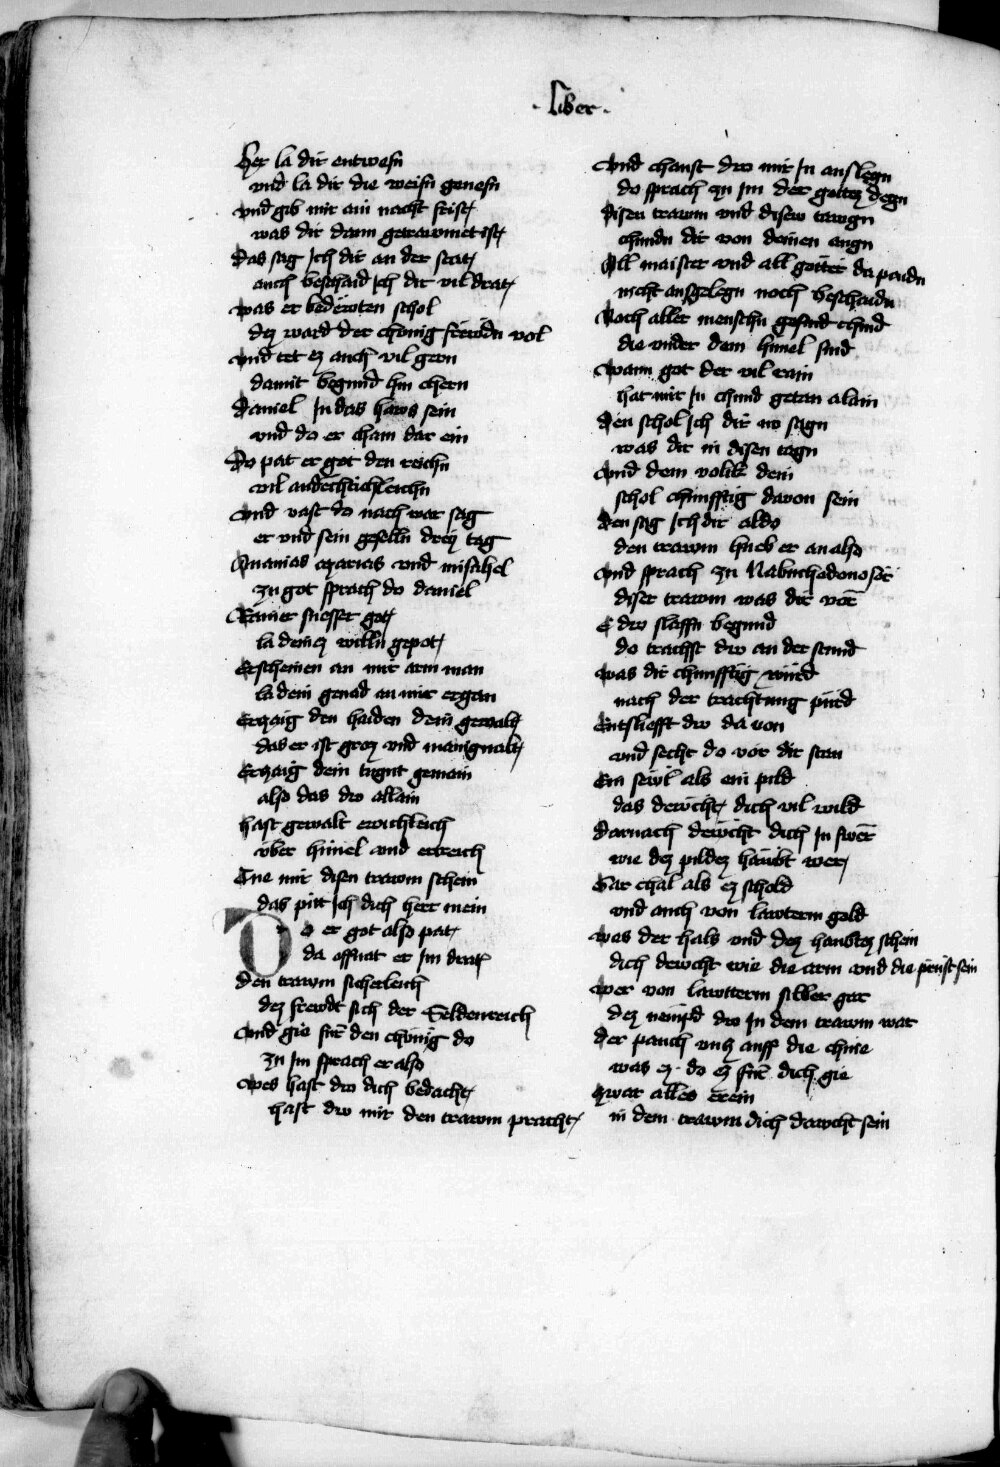 · Liber ·
Her la dir entwesn
vnd la dir die weisn genesn
vnd gib mir ain nacht frist
was dir dann getrawmet ist
Das sag Ich dir an der stat
auch beschaid ich dir vil drat
was er bedewten schol
dez ward der chönig frewdn vol
vnd tet ez auch vil gern
damit begund hin chern
Daniel In das haws sein
vnd do er cham dar ein
Do pat er got den reichn
vil andechtichleichn
vnd vast do nach war sag
er vnd sein geselln drey tag
Ananias azarias vnd misahel
zu got sprach do daniel
Rainer suesser got
la deinez willn gepot
Erscheinen an mir arm man
la dein genad an mir ergan
Erzaig den haiden dein gewalt
das er ist groz vnd manigualt
Erzaig dein tugnt gemain
also das dw allain
hast gewalt ewichleich
vber himel vnd erreich
Tue mir disen trawm schein
das pitt Ich dich herr mein
Do er got also pat
da offnat er Im drat
den trawm sicherleich
dez frewdt sich der Seldenreich
vnd gie für den chönig do
zu Im sprach er also
wes hast dw dich bedacht
hast dw mir den trawm pracht
vnd chanst dw mir In auslegn
do sprach zu Im der gottez degn
disen trawm vnd disew tawgn
chundn dir von deinen augn
All maister vnd all götter da paidn
nicht ausgelegn noch beschaidn
Noch aller menschn gesind chind
die vnder dem himel sind
wann got der vil rain
hat mir In chund getan alain
den schol Ich dir nv sagn
was dir in disen tagn
vnd dem volikk dein
schol chunfftig davon sein
den sag Ich dir aldo
den trawm hueb er an also
vnd sprach zu Nabuchodonosor
diser trawm was dir vor
E dw slaffn begund
do trachst dw an der stund
was dir chunfftig würd
nach der trachtung pürd
Entslefft dw da von
vnd secht do vor dir stan
Ein sewl als ein pild
das dewcht dich vil wild
darnach dewcht dich In swer
wie dez pildez haubt wer
Gar chal als ez schold
vnd auch von lawterm gold
was der hals vnd dez haubtez schein
dich dewcht wie die arm vnd die prust sein
wer von lawterm silber gar
dez nempd dw In dem trawm war
der pauch vntz auff die chnie
was ez do ez für dich gie
zwar alles erein
in dem trawm dich dawcht sein